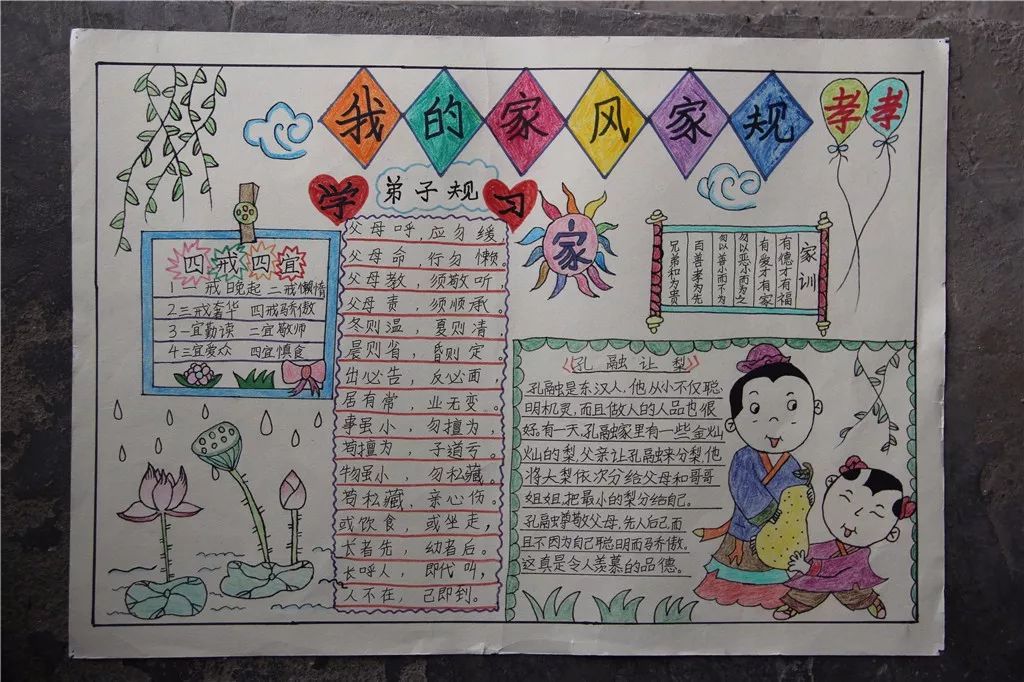 我的家风家规
孝 孝
学 弟子规 习
父母呼,应勿缓,
父母命,行勿懒。
父母教,须敬听,
父母责,须顺承。
冬则温,夏则凊,
晨则省,昏则定。
出必告,反必面,
居有常,业无变。
事虽小,勿擅为,
苟擅为,子道亏。
物虽小,勿私藏,
苟私藏,亲心伤。
或饮食,或坐走,
长者先,幼者后。
长呼人,即代叫,
人不在,己即到。
四戒四宜
1一戒晚起 二戒懒惰
2三戒奢华 四戒骄傲
3一宜勤读 二宜敬师
4三宜爱众 四宜慎食
家
家训
有德才有福
有爱才有家
勿以恶小而为之
勿以善小而不为
百善孝为先
兄弟和为贵
孔融让梨
孔融是东汉人,他从小不仅聪
明机灵,而且做人的人品也很
好。有一天,孔融家里有一些金灿
灿的梨,父亲让孔融来分梨,他
将大梨依次分给父母和哥哥
姐姐,把最小的梨分给自己。
孔融尊敬父母,先人后己,而
且不因为自己聪明而骄傲。
这真是令人羡慕的品德。